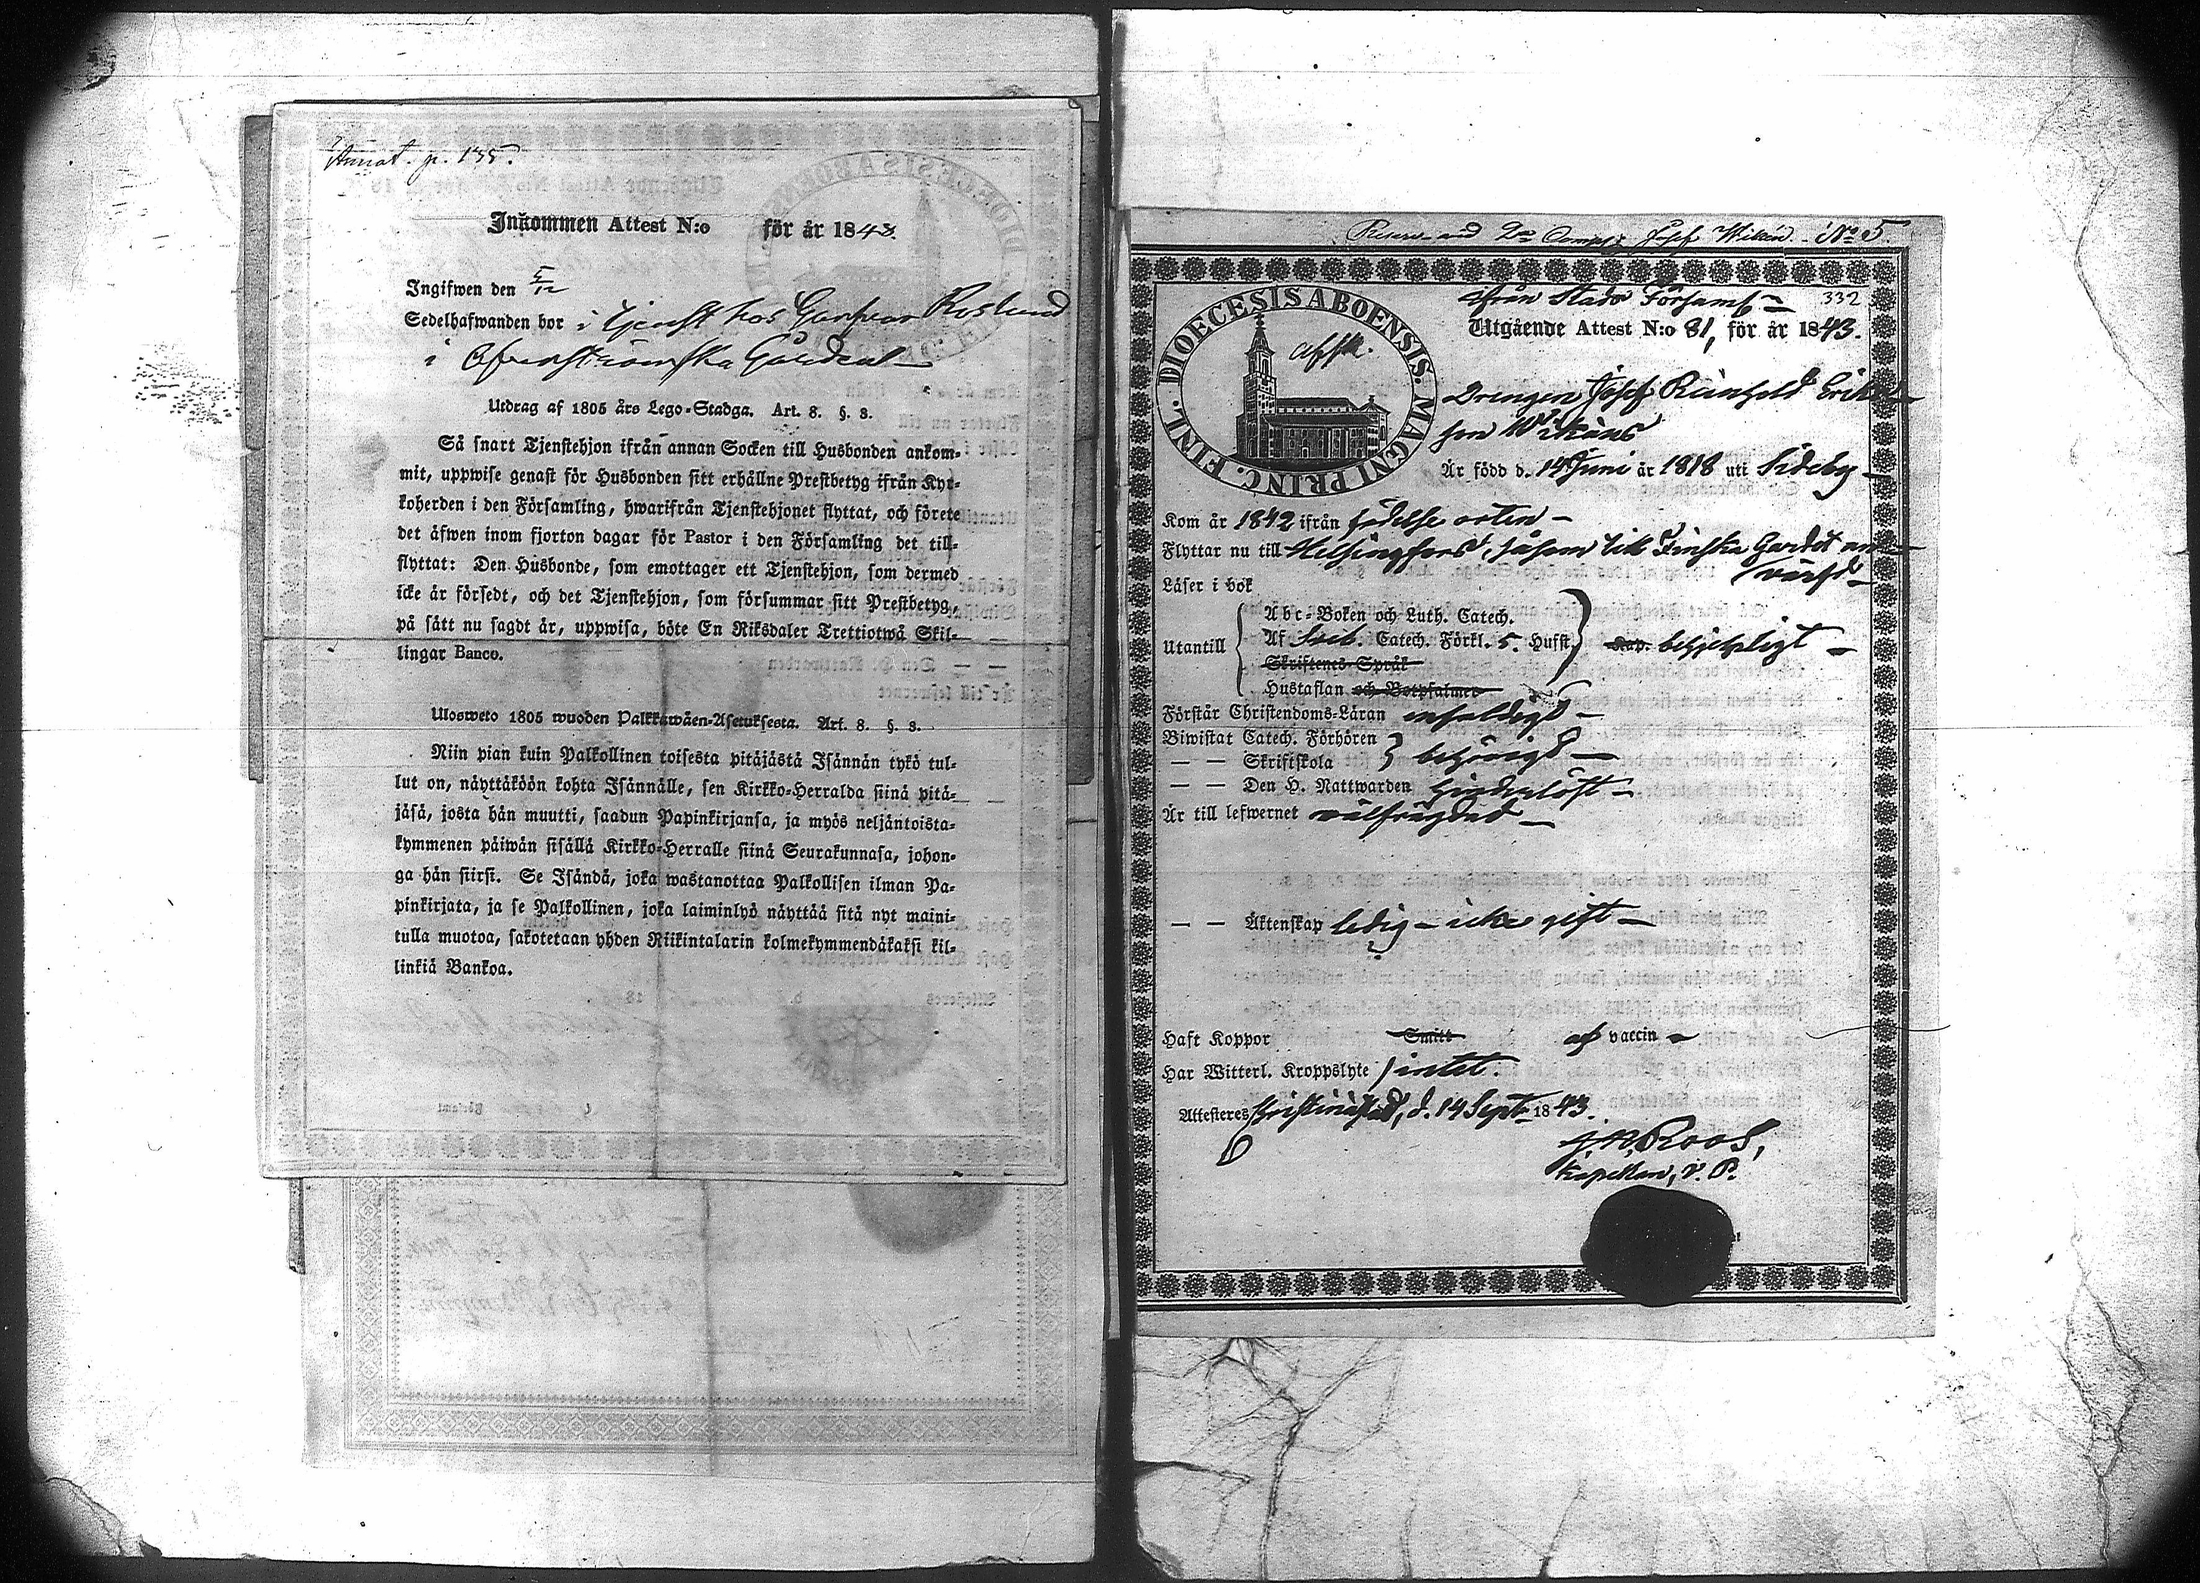 Annot. p. 135.
Inkommen Attest N:o för år 1843.
Ingifwen den 5/12
Sedelhafwanden bor i tjenst hos Roslund
i Gården
Utdrag af 1805 års Lego-Stadga. Art. 8. §. 3.
Så snart Tjenstehjon ifrån annan Socken till Husbonden ankom-
mit, uppwise genast för Husbonden sitt erhållne Prestbetyg ifrån Kyr-
koherden i den Församling, hwarifrån Tjenstehjonet flyttat, och förete
det äfwen inom fjorton dagar för Pastor i den Församling det till-
flyttat: Den Husbonde, som emottager ett Tjenstehjon, som dermed
icke är försedt, och det Tjenstehjon, som försummar sitt Prestbetyg,
på sätt nu sagdt är, uppwisa, böte En Riksdaler Trettiotwå Skil-
lingar Banco.
Ulosweto 1805 wuoden Palkkawäen-Asetuksesta. Art. 8. §. 3.
Niin pian kuin Palkollinen toisesta pitäjästä Isännän tykö tul-
lut on, näyttäköön kohta Isännälle, sen Kirkko-Herralda siinä pitä-
jäsä, josta hän muutti, saadun Papinkirjansa, ja myös neljäntoista-
kymmenen päiwän sisällä Kirkko-Herralle siinä Seurakunnasa, johon-
ga hän siirsi. Se Isändä, joka wastanottaa Palkollisen ilman Pa-
pinkirjata, ja se Palkollinen, joka laiminlyö näyttää sitä nyt maini-
tulla muotoa, sakotetaan yhden Riikintalarin kolmekymmendäkaksi kil-
linkiä Bankoa.
Josef Wikén. No 5.
332
ifrån Stads Församl
Utgående Attest N:o 81, för år 1843.
DIOECESIS ABOENSIS. MAGNI PRINC. FINL.
afsk.
Drengen Josef Reinhold Eriks
son Wikéns
Är född d. 14 Juni år 1818 uti Sideby
Kom år 1842 ifrån födelse orten
Flyttar nu till Helsingfors, såsom till Finska Gardet an
värfd
Läser i bok
Utantill
Abc-Boken och Luth. Catech.
Af Sveb. Catech. Förkl. 5. Hufst. Kap. begripligt
Skriftenes Språk
Hustaflan och Botpsalmer
Förstår Christendoms-Läran enfaldigt
Biwistat Catech. Förhören
— — Skriftskola behörigt
— — Den H. Nattwarden hinderlöst
Är till lefwernet välfrägdad
— — Äktenskap ledig – icke gift
Haft Koppor Smitt af vaccin
Har Witterl. Kroppslyte intet.
Attesteres Kristinestad, d. 14 Sept 1843.
J. R. Roos,
Kapellan, v. P.